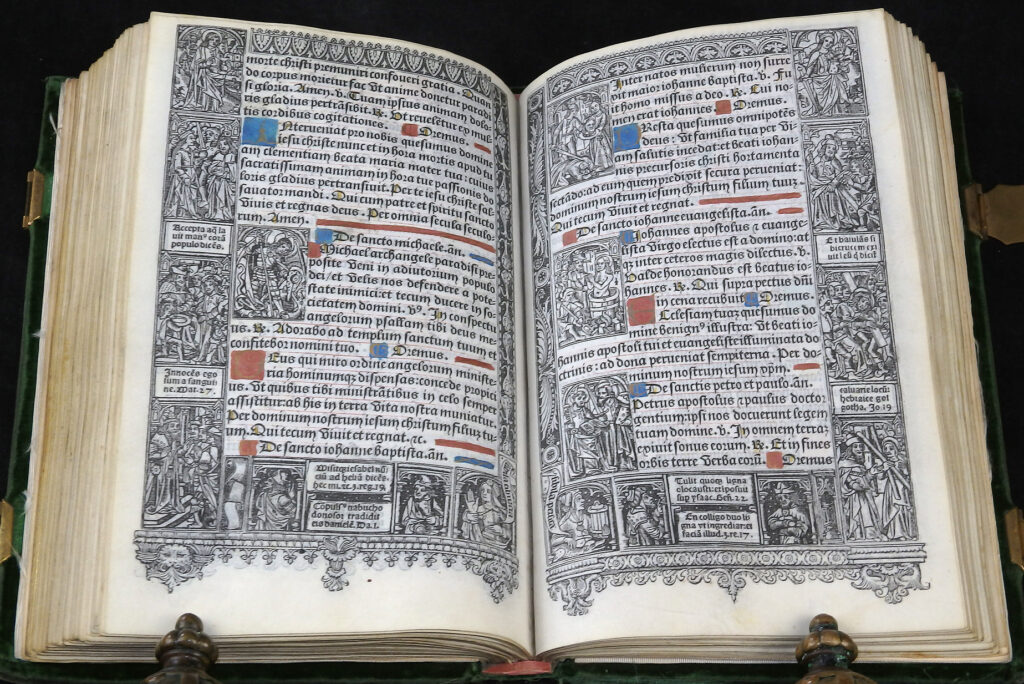 morte christi premuniri confoueri gratia. Quan
do corpus morietur fac vt anime donetur paradi
si gloria. Amen. v. Tuam ipsius animam dolo
ris gladius pertrãsibit. R. Vt reuelẽtur ex mul
tis cordibus cogitationes. Oremus.
Nterueniat pro nobis quesumus domine
iesu christe nunc et in hora mortis apud tu
am clementiam beata maria mater tua cuius
sacratissimam animam in hora tue passionis do
loris gladius pertransiuit. Per te iesu christe sal
uator mundi. Qui cum patre et spiritu sancto
viuis et regnas deus. Per omnia secula seculo
rum. Amen.
De sancto michaele. añ.
Michael archangele paradisi pre
posite veni in adiutorum populo
dei/ et velis nos defendere a pote
state inimici: et tecum ducere in so
cietatem domini. vs. In conspectu
angelorum psallam tibi deus me
us. R. Adorabo ad templum sanctum tuum et
confitebor nomini tuo. Oremus.
Eus qui miro ordine angelorum ministe
ria hominumq; dispensas: concede propici
us. vt quibus tibi ministrãtibus in celo semper
assistitur: ab his in terra vita nostra muniatur.
Per dominum nostrum iesum christum filiũ tu
um. Qui tecum viuit et regnat. &c.
De sancto iohanne baptista. añ.
Accepta aq̃ la
uit man⁹ corã
populo dicẽs.
Innocẽs ego
sum a sangui
ne. Mat. 27.
Misitq; iesabel nũ
ciũ ad heliã dicẽs
hec mi. &c. 3. reg. 19.
nabucho
donosor tradidit
eis danielẽ. Da. 1.
Inter natos mulierum non surre
xit maior iohanne baptista. v. Fu
it homo missus a deo. R. Cui no
men erat iohannes. Oremus.
Resta quesumus omnipotẽs
deus: vt familia tua per vi
am salutis incedat: et beati iohan
nis precursoris christi hortamenta
sectando: ad eum quem predixit secura perueniat:
dominum nostrum iesum christum filium tuũ:
Qui tecum viuit et regnat.
De sancto iohanne euangelista. añ.
Iohannes apostolus & euange
lista virgo electus est a domino: at
q; inter ceteros magis dilectus. v.
Valde honorandus est beatus io
hannes. R. Qui supra pectus dñi
in cena recubuit. Oremus.
Ecclesiam tuaz quesumus do
mine benign⁹ illustra: vt beati io
hannis apostoli tui et euangeliste illuminata do
ctrinis: ad dona perueniat sempiterna. Per do
minum nostrum iesum xpm.
De sanctis petro et paulo. añ.
Petrus apostolus & paulus doctor
gentium ipsi nos docuerunt legem
tuam domine. v. In omnem terraz
exiuit sonus eorum. R. Et in fines
orbis terre verba eorũ. Oremus
Et baiulãs si
bi crucem ex
iuit iesũ q̃ dicit
caluarie locũ:
hebraice gol
gotha. Jo. 19
Tulit quoq; ligna
olocausti: et iposuit
sup ysaac. Gen. 22.
En colligo duo li
gna vt ingrediar: et
faciã illud. 3. re. 17.